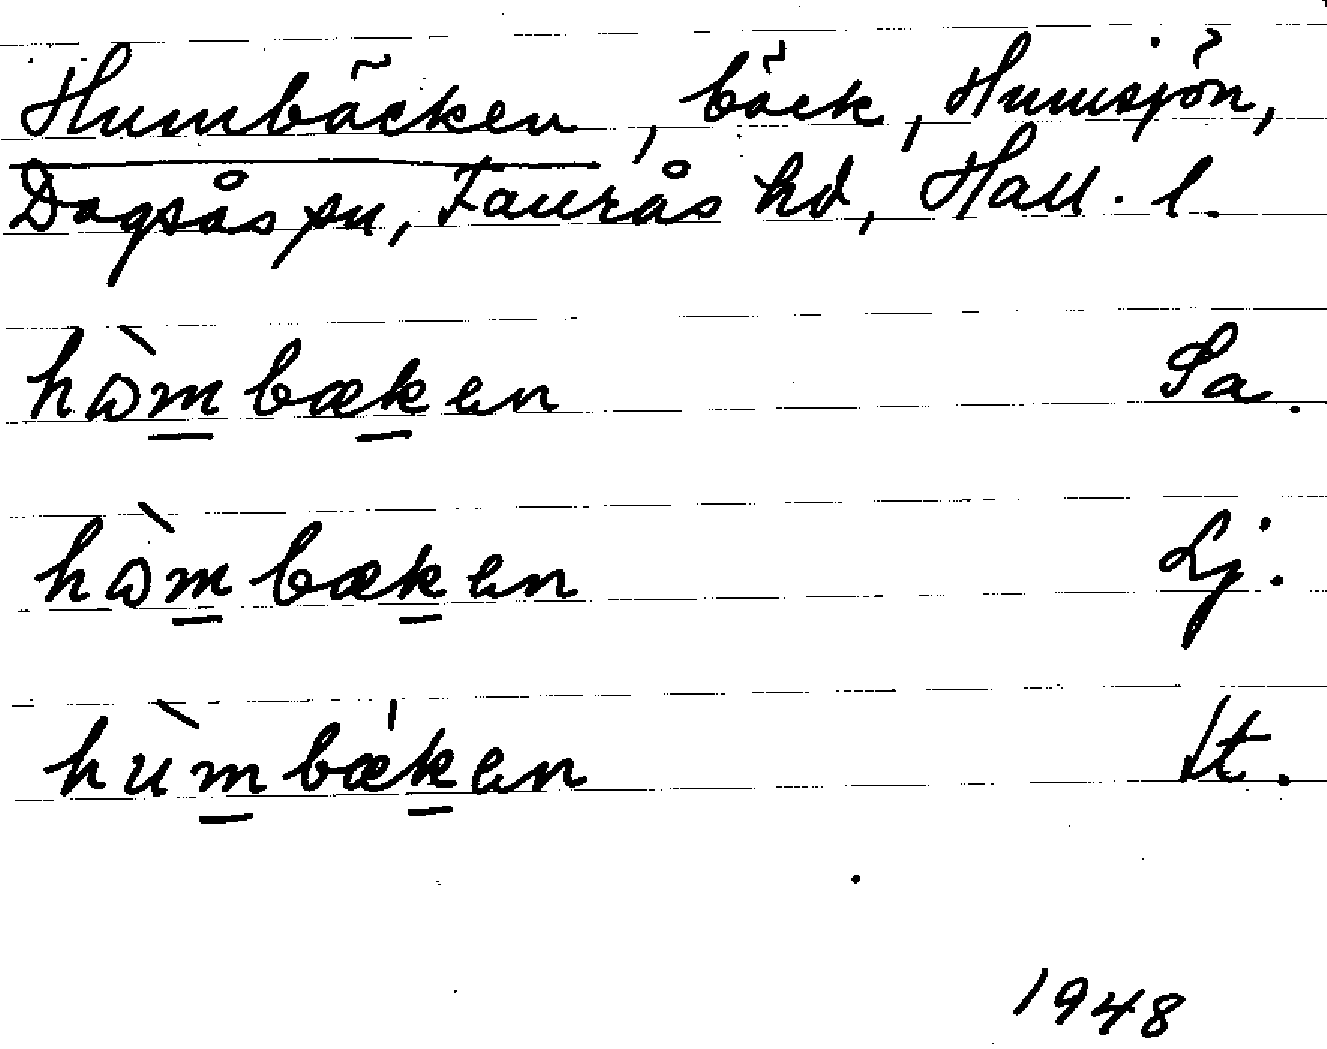 Humbäcken, bäck, Humsjön,
Dagsås sn, Faurås hd, Hall. l.
hɷ̀mbæken Sa.
hɷ̀mbæken Lj.
hùmbæken St.
1948